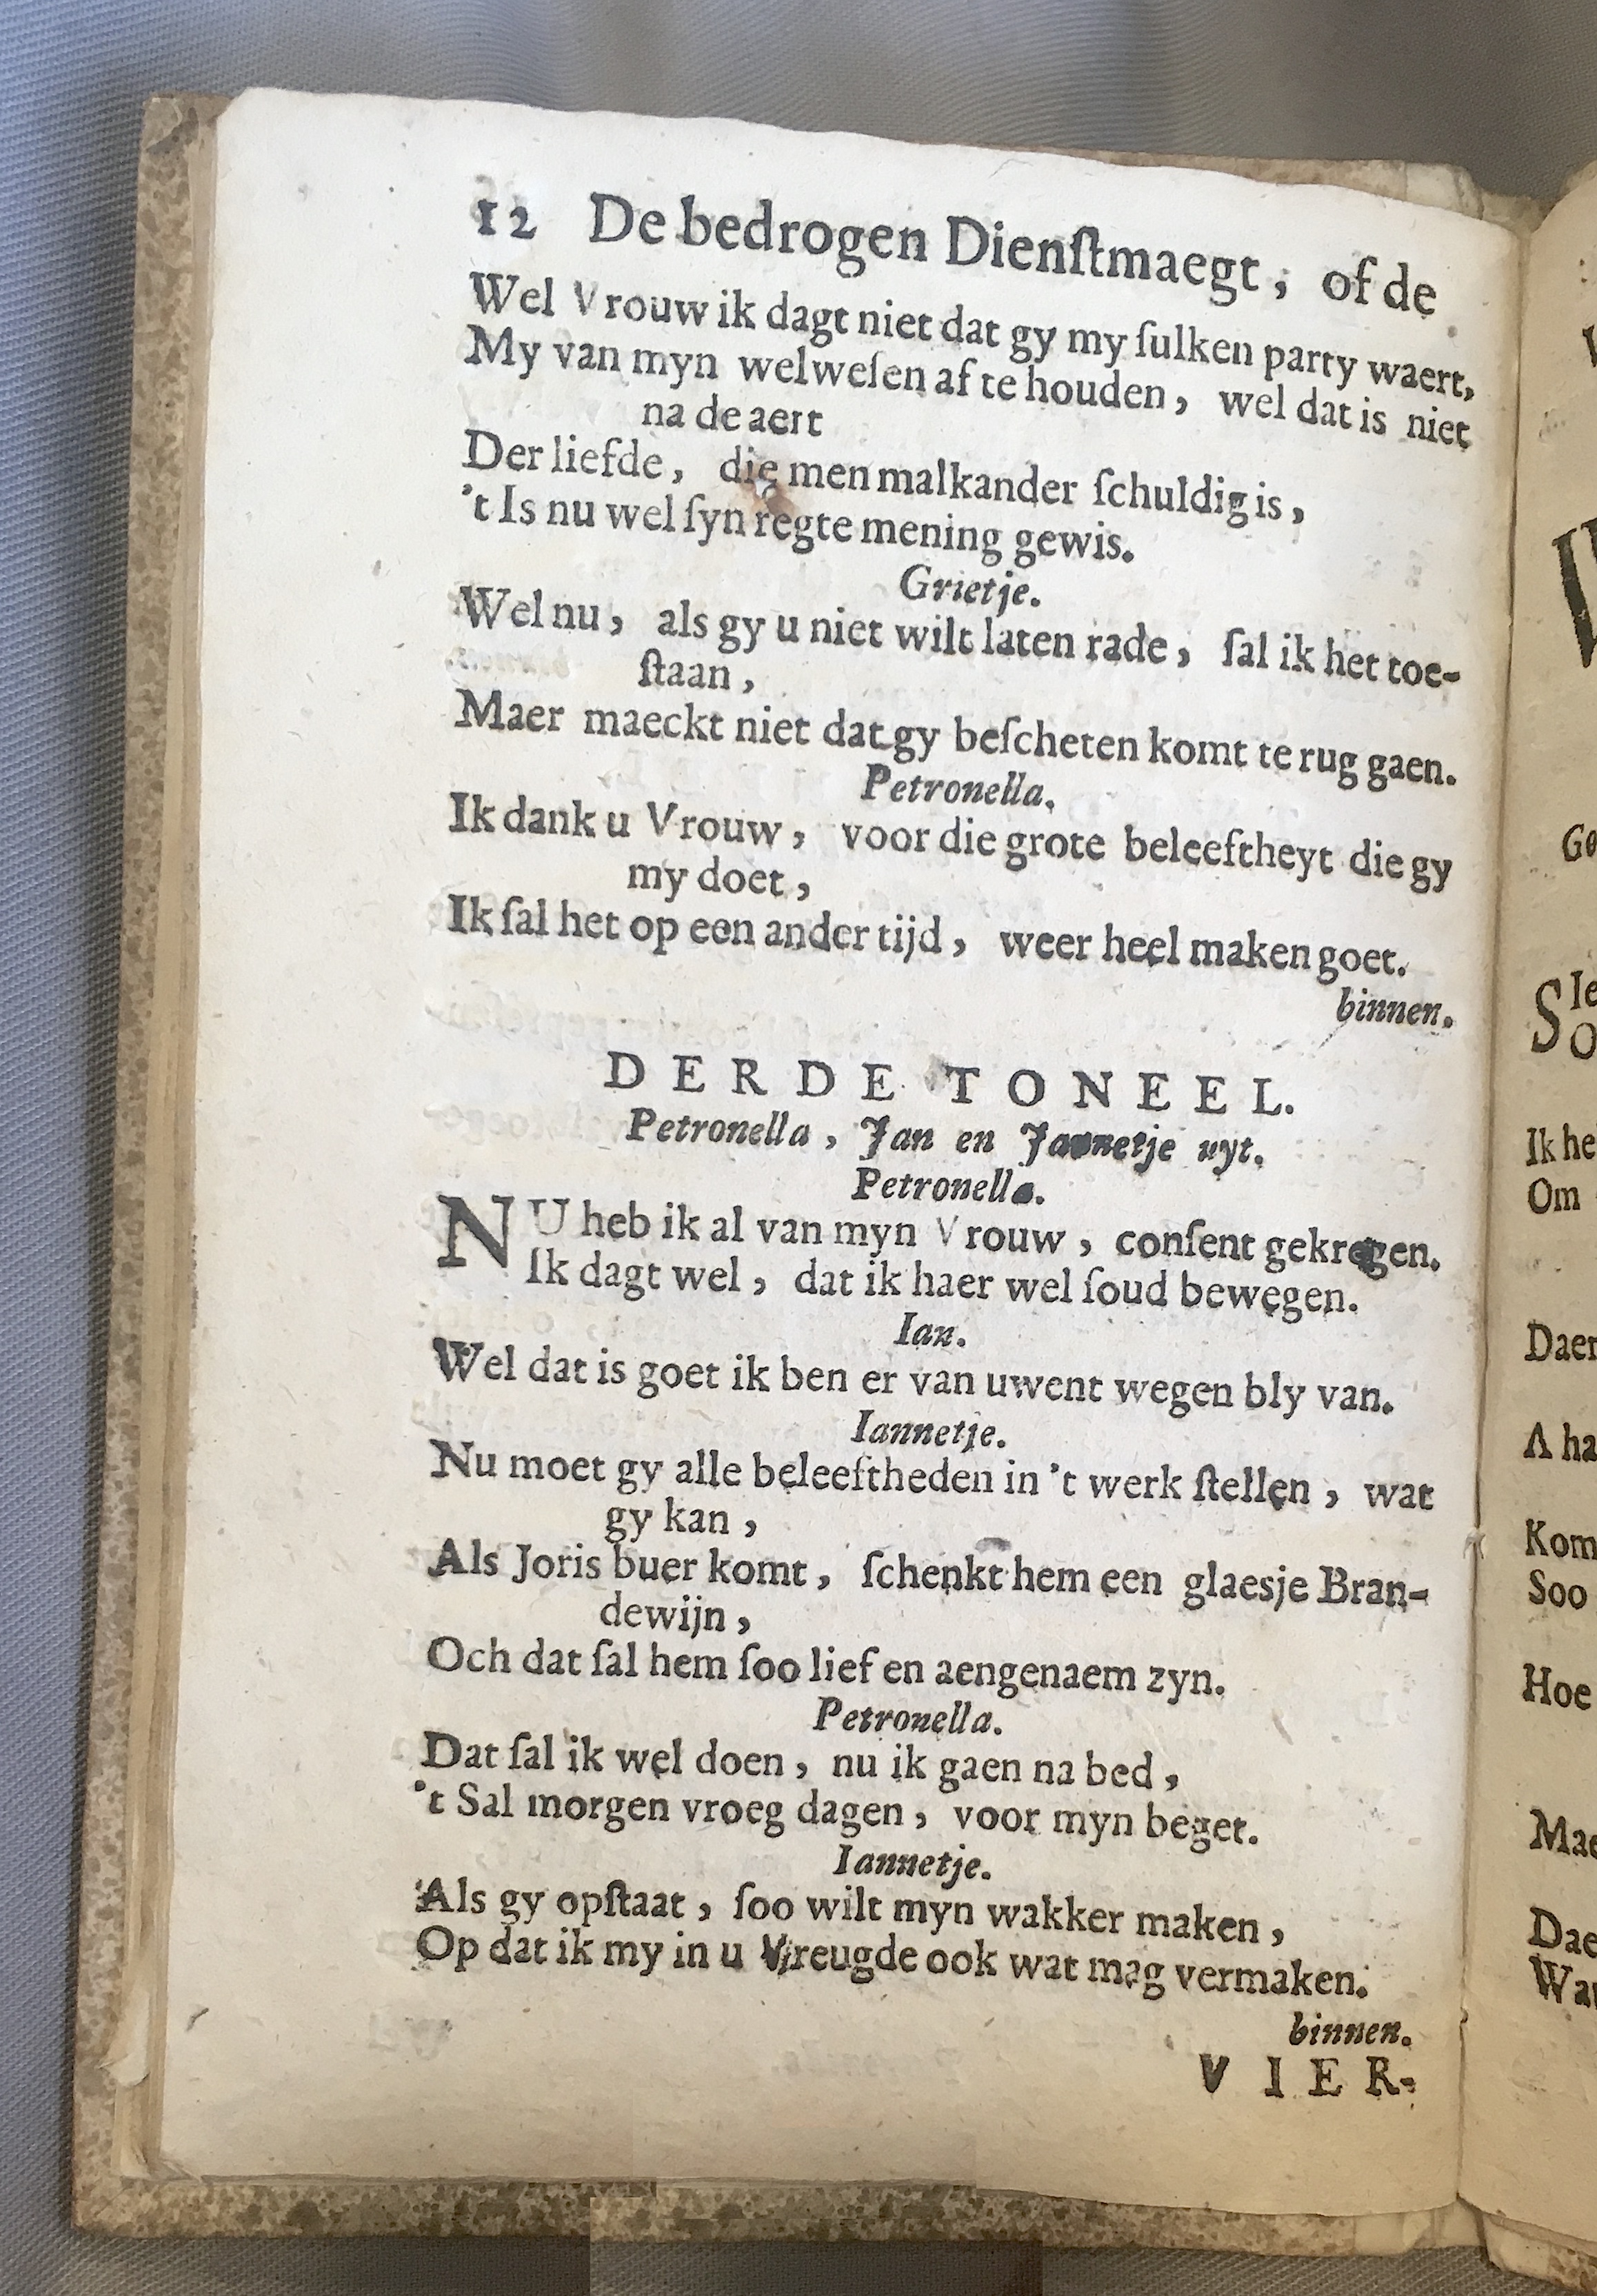 12 De bedrogen Dienſtmaegt, of de
Wel Vrouw ik dagt niet dat gy my ſulken party waert,
My van myn welweſen af te houden, wel dat is niet
na de aert
Der liefde, die men malkander ſchuldig is,
't Is nu wel ſyn regte mening gewis.
Grietje.
Wel nu, als gy u niet wilt laten rade, ſal ik het toe-
ſtaan,
Maer maeckt niet dat gy beſcheten komt te rug gaen.
Petronella.
Ik dank u Vrouw, voor die grote beleeftheyt die gy
my doet,
Ik ſal het op een ander tijd, weer heel maken goet.
binnen.
DERDE TONEEL.
Petronella, Jan en Jannetje uyt.
Petronella.
NU heb ik al van myn Vrouw, conſent gekregen.
Ik dagt wel, dat ik haer wel ſoud bewegen.
Ian.
Wel dat is goet ik ben er van uwent wegen bly van.
Iannetje.
Nu moet gy alle beleeftheden in 't werk ſtellen, wat
gy kan,
Als Joris buer komt, ſchenkt hem een glaesje Bran-
dewijn,
Och dat ſal hem ſoo lief en aengenaem zyn.
Petronella.
Dat ſal ik wel doen, nu ik gaen na bed,
't Sal morgen vroeg dagen, voor myn beget.
Iannetje.
Als gy opſtaat, ſoo wilt myn wakker maken,
Op dat ik my in u Vreugde ook wat mag vermaken.
binnen.
VIER-
Ik he
Om
Daer
A ha
Kom
Soo
Hoe
Mae
Dae
Wa